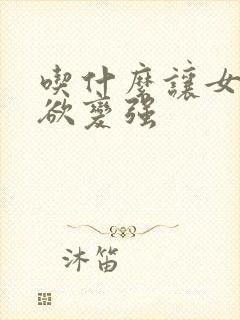 喫什麼讓女
欲變強
沐笛